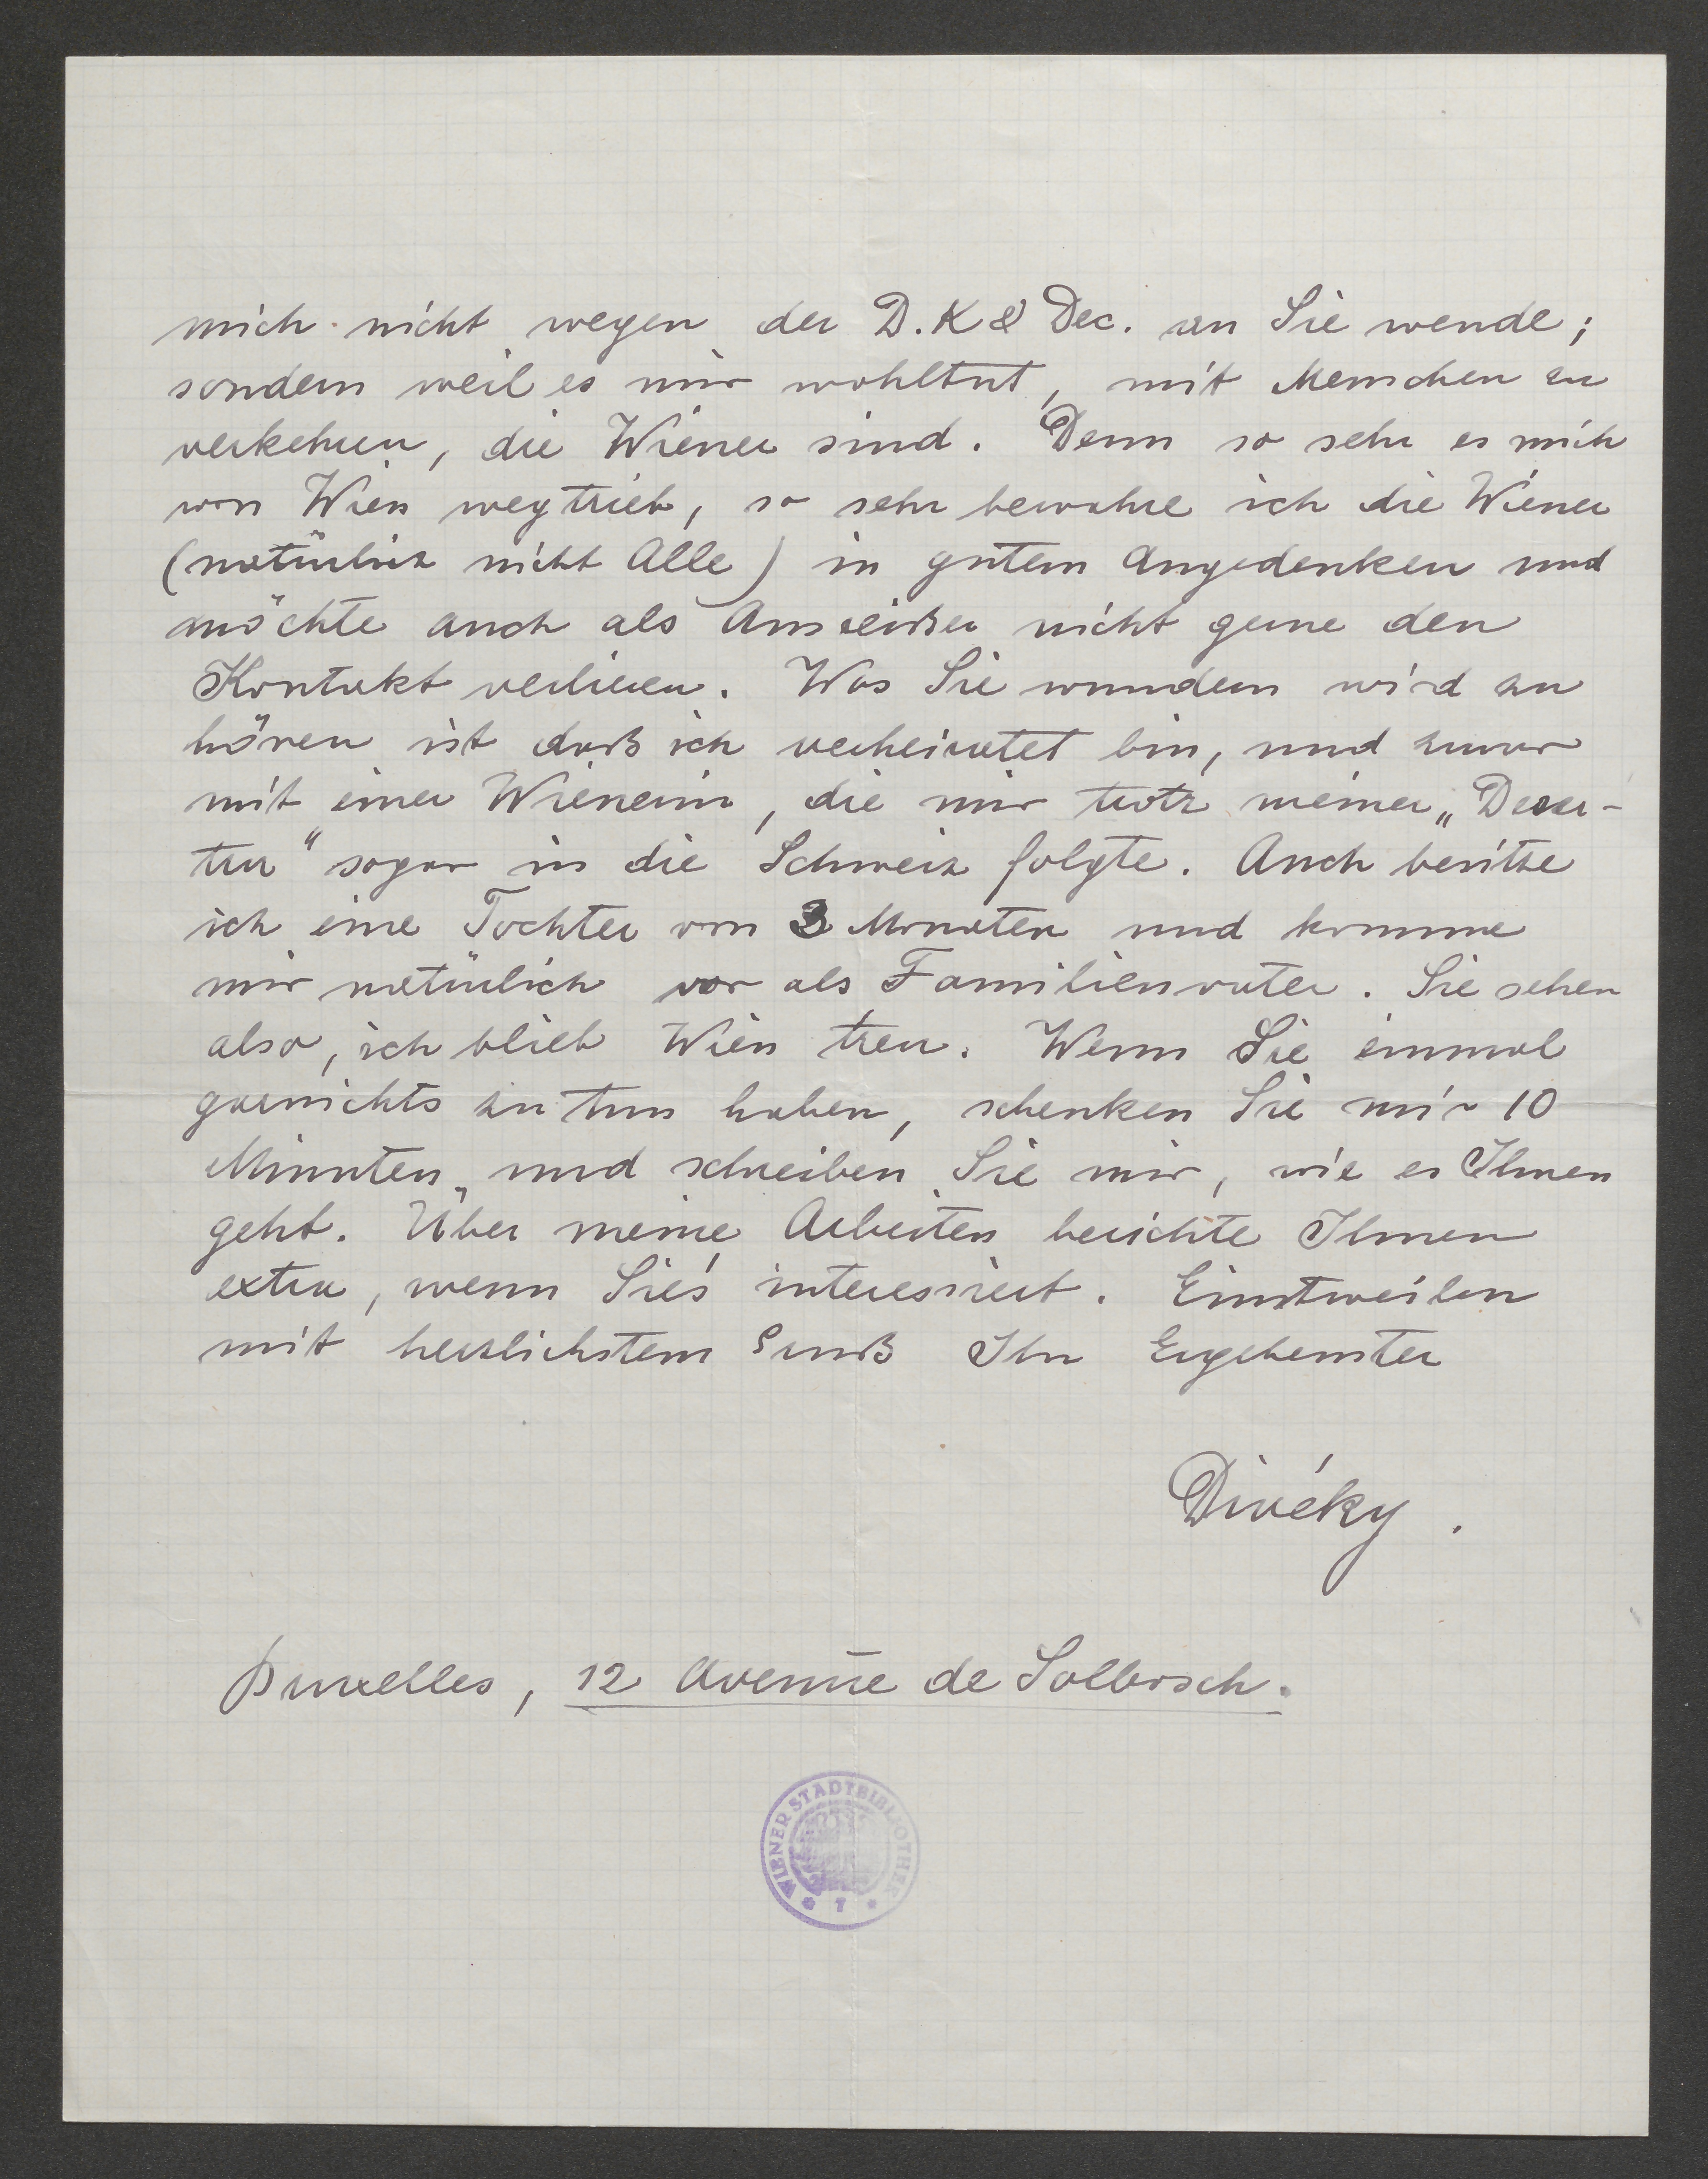 mich nicht wegen der D. K & Dec. an Sie wende;
sondern weil es mir wohltut, mit Menschen zu
verkehren, die Wiener sind. Denn so sehr es mich
von Wien wegtrieb, so sehr bewahre ich die Wiener
(natürlich nicht Alle) in gutem Angedenken und
möchte auch als Ausreißer nicht gerne den
Kontakt verlieren. Was Sie wundern wird zu
hören ist daß ich verheiratet bin, und zwar
mit einer Wienerin, die mir trotz meiner „Deser-
tur“ sogar in die Schweiz folgte. Auch besitze
ich eine Tochter von 3 Monaten und komme
mir natürlich vor als Familienvater. Sie sehen
also, ich blieb Wien treu. Wenn Sie einmal
garnichts zu tun haben, schenken Sie mir 10
Minuten und schreiben Sie mir, wie es Ihnen
geht. Über meine Arbeiten berichte Ihnen
extra, wenn Sie's interessiert. Einstweilen
mit herzlichstem Gruß Ihr Ergebenster
Divéky.
Bruxelles, 12 Avenue de Solbosch.
WIENER STADTBIBLIOTHEK
* 7 *